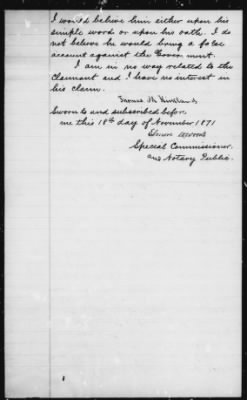 I would believe him either upon his
simple word or upon his oath. I do
not believe he would bring a false
account against the Government.
I am in no way related to the
claimant and I have no interest in
his claim.
M Kirkland
Sworn to and subscribed before
me this 18th day of November 1871
Special Commissioner
and Notary Public.